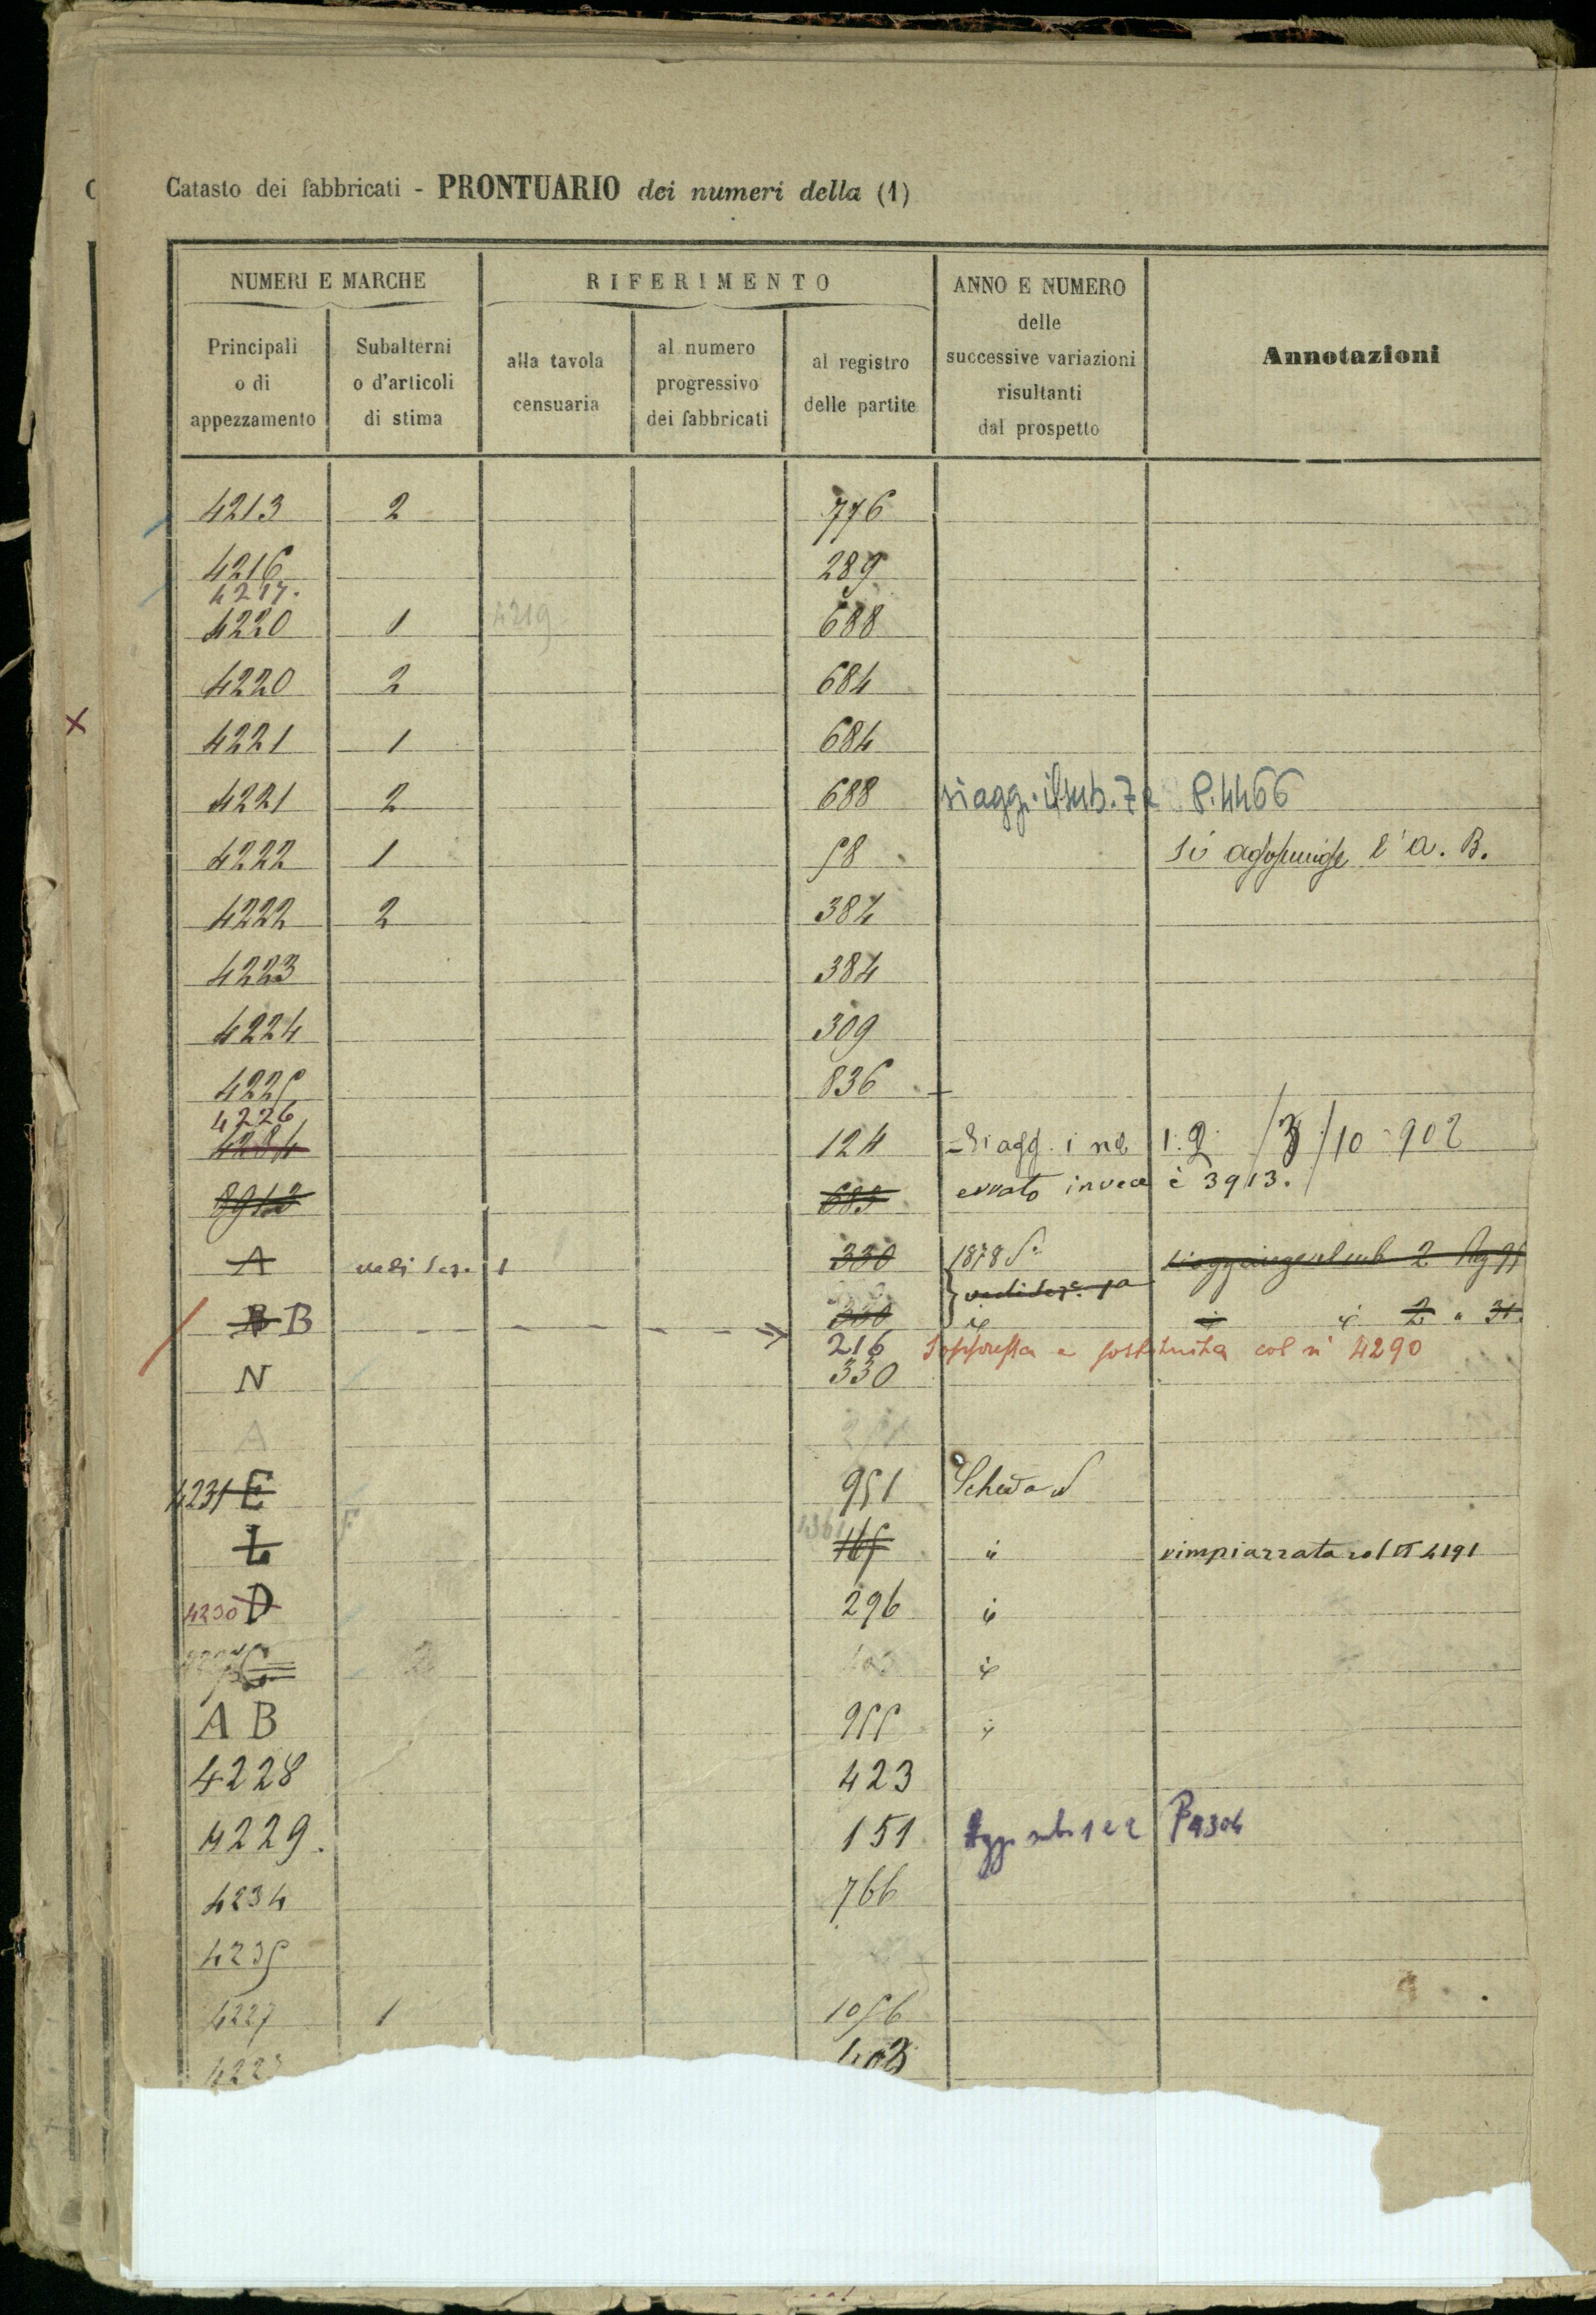 Catasto dei fabbricati - PRONTUARIO dei numeri della (1)
NUMERI E MARCHE
RIFERIMENTO
ANNO E NUMERO
delle
successive variazioni
risultanti
dal prospetto
Annotazioni
Principali
o di
appezzamento
Subalterni
o d'articoli
di stima
alla tavola
censuaria
al numero
progressivo
dei fabbricati
al registro
delle partite
4213 2 776
4216 289
4217.
4220 1 4219 688
4220 2 684
4221 1 684
4221 2 688 si agg. il sub. 7 P. 4466
4222 1 58 si aggiunge l'a. B.
4222 2 384
4223 384
4224 309
4225 836
4226
4284 124 Si agg. i nri 1. 2. /3/ 10 902
8912 685 errato invece è 3913.
A vedi Sez. 1 330 1878 S.
vedi Sez. 1a
B B 330 2 31
216 Soppressa e sostituita col n 4290
N 330
A
4231 E 951 Scheda
L 165 rimpiazzata col N 4191
4230 D 296
C 2
A B 955
4228 423
4229. 151 Agg. sub. 1 e 2 P 4304
4234 766
4235
4227 1 1056
422 403